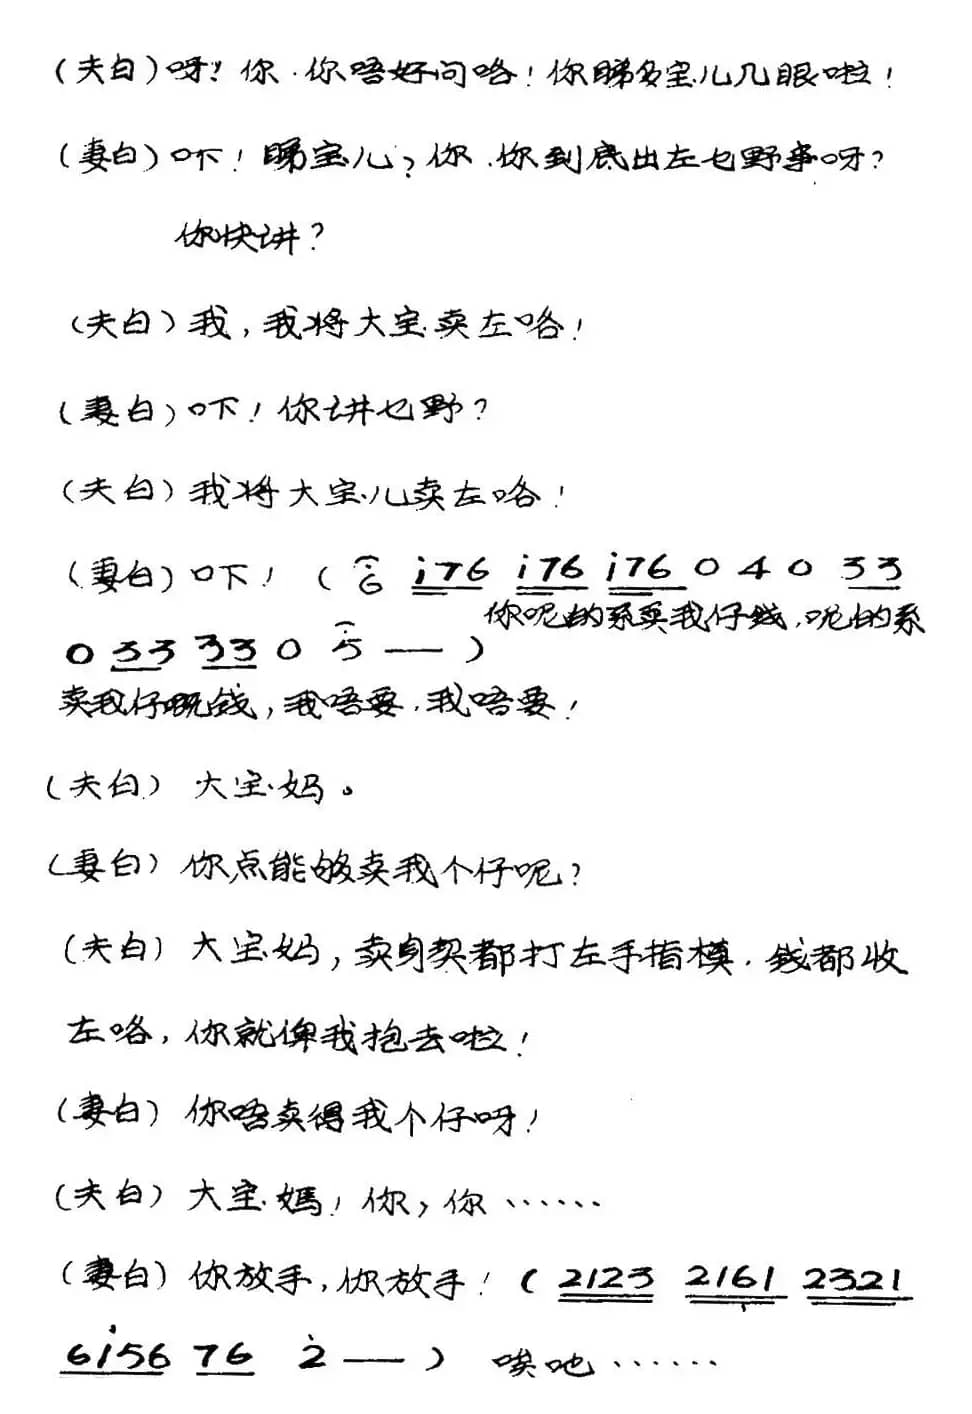 (夫白)呀!你.你唔好问咯!你睇多宝儿几眼啦!
(妻白)吓!睇宝儿?你.你到底出左乜野事呀?
你快讲?
(夫白)我,我将大宝卖左咯!
(妻白)吓!你讲乜野?
(夫白)我将大宝儿卖左咯!
(妻白)吓!(6 i76 i76 i76 0 4 0 33
你呢的系卖我仔钱,呢的系
0 33 33 0 5 —)
卖我仔嘅钱,我唔要.我唔要!
(夫白)大宝妈。
(妻白)你点能够卖我个仔呢?
(夫白)大宝妈,卖身契都打左手指模.钱都收
左咯,你就俾我抱去啦!
(妻白)你唔卖得我个仔呀!
(夫白)大宝媽!你,你······
(妻白)你放手,你放手!(2123 2161 2321
6i56 76 2 —)唉吔······